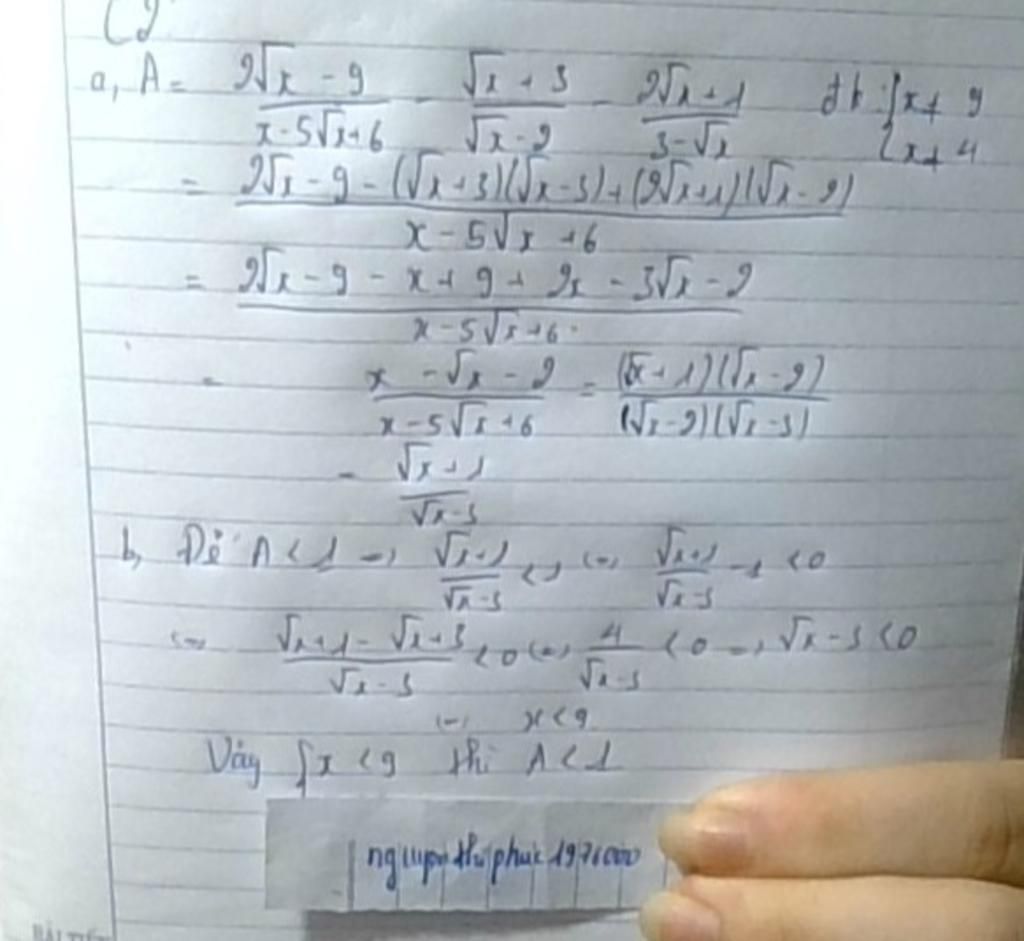 C2
a, A = \frac{2\sqrt{x} - 9}{x - 5\sqrt{x} + 6} - \frac{\sqrt{x} + 3}{\sqrt{x} - 2} - \frac{2\sqrt{x} + 1}{3 - \sqrt{x}} đk: { x ≠ 9
x ≠ 4
= \frac{2\sqrt{x} - 9 - (\sqrt{x} + 3)(\sqrt{x} - 3) + (2\sqrt{x} + 1)(\sqrt{x} - 2)}{x - 5\sqrt{x} + 6}
= \frac{2\sqrt{x} - 9 - x + 9 + 2x - 3\sqrt{x} - 2}{x - 5\sqrt{x} + 6}
= \frac{x - \sqrt{x} - 2}{x - 5\sqrt{x} + 6} = \frac{(\sqrt{x} + 1)(\sqrt{x} - 2)}{(\sqrt{x} - 2)(\sqrt{x} - 3)}
= \frac{\sqrt{x} + 1}{\sqrt{x} - 3}
b, Để A < 1 => \frac{\sqrt{x} + 1}{\sqrt{x} - 3} < 1 <=> \frac{\sqrt{x} + 1}{\sqrt{x} - 3} - 1 < 0
<=> \frac{\sqrt{x} + 1 - \sqrt{x} + 3}{\sqrt{x} - 3} < 0 <=> \frac{4}{\sqrt{x} - 3} < 0 => \sqrt{x} - 3 < 0
<=> x < 9
Vậy { x < 9 thì A < 1